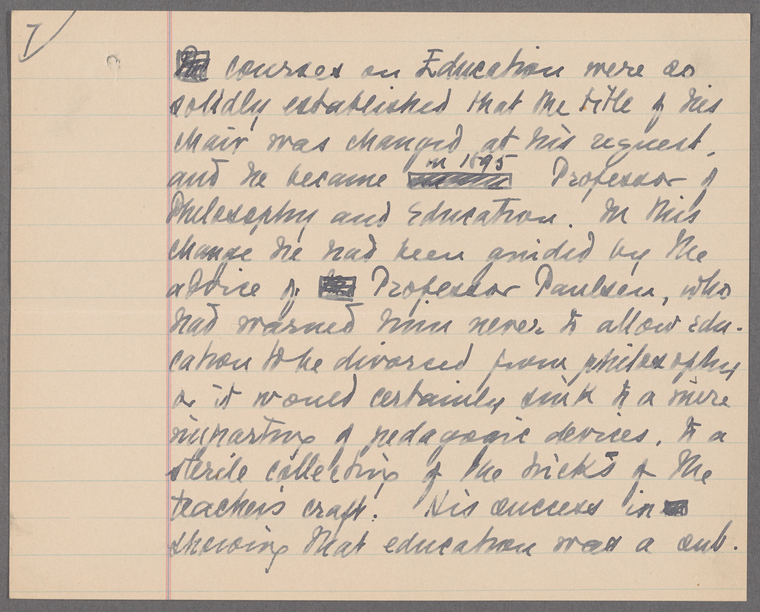 7
courses on Education were so
solidly established that the title of his
chair was changed at his request,
in 1895
and he became Professor of
Philosophy and Education. In this
change he had been guided by the
advice of Professor Paulsen, who
had warned him never to allow edu-
cation to be divorced from philosophy
or it would certainly sink to a mere
imparting of pedagogic devices, to a
sterile collecting of the tricks of the
teacher's craft. His success in
showing that education was a sub-